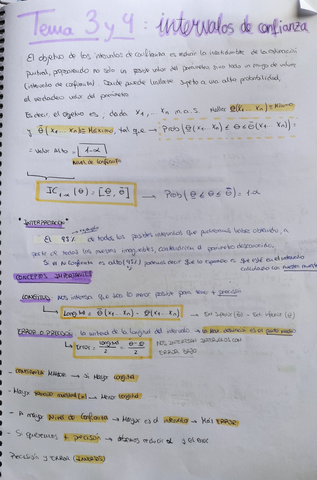 Tema 3 y 4 : intervalos de confianza
El objetivo de los intervalos de confianza es reducir la incertidumbre de la estimación
puntual, proporcionando no solo un posible valor del parámetro, sino todo un rango de valores
(intervalo de confianza) Donde puede localizarse sujeto a una alta probabilidad,
el verdadero valor del parámetro.
Es decir, el objetivo es, dada X1, ... Xn m.a.s. Hallar θ(X1... Xn) = Mínimo
y θ̄(X1... Xn) = Máximo, tal que → Prob(θ(X1... Xn) ≤ θ ≤ θ̄(X1... Xn)) =
= Valor Alto = 1-α
Nivel de confianza
IC1-α (θ) = [θ, θ̄] → Prob(θ ≤ θ ≤ θ̄) = 1-α
* INTERPRETACIÓN
El 95% de todos los posibles intervalos que podríamos haber obtenido, a
partir de todas las muestras imaginables, contendrían el parámetro desconocido,
Si el Nv confianza es alto (95%) podemos decir que lo esperable es que esté en el intervalo
calculado con nuestra muestra
CONCEPTOS IMPORTANTES
LONGITUD: Nos interesa que sea lo menor posible para tener + precisión
Longitud = θ̄(X1... Xn) - θ(X1... Xn)
ERROR O PRECISIÓN: la mitad de la longitud del intervalo →
Error = longitud / 2 = θ̄-θ / 2
NOS INTERESAN INTERVALOS CON
ERROR BAJO
- Mayor → Si Mayor longitud
- Mayor tamaño muestral (n) → Menor longitud
- A mayor Nivel de confianza → Mayor es el intervalo → Más ERROR
- Si queremos + precisión → debemos reducir el y el error
Precisión y ERROR (INVERSOS)